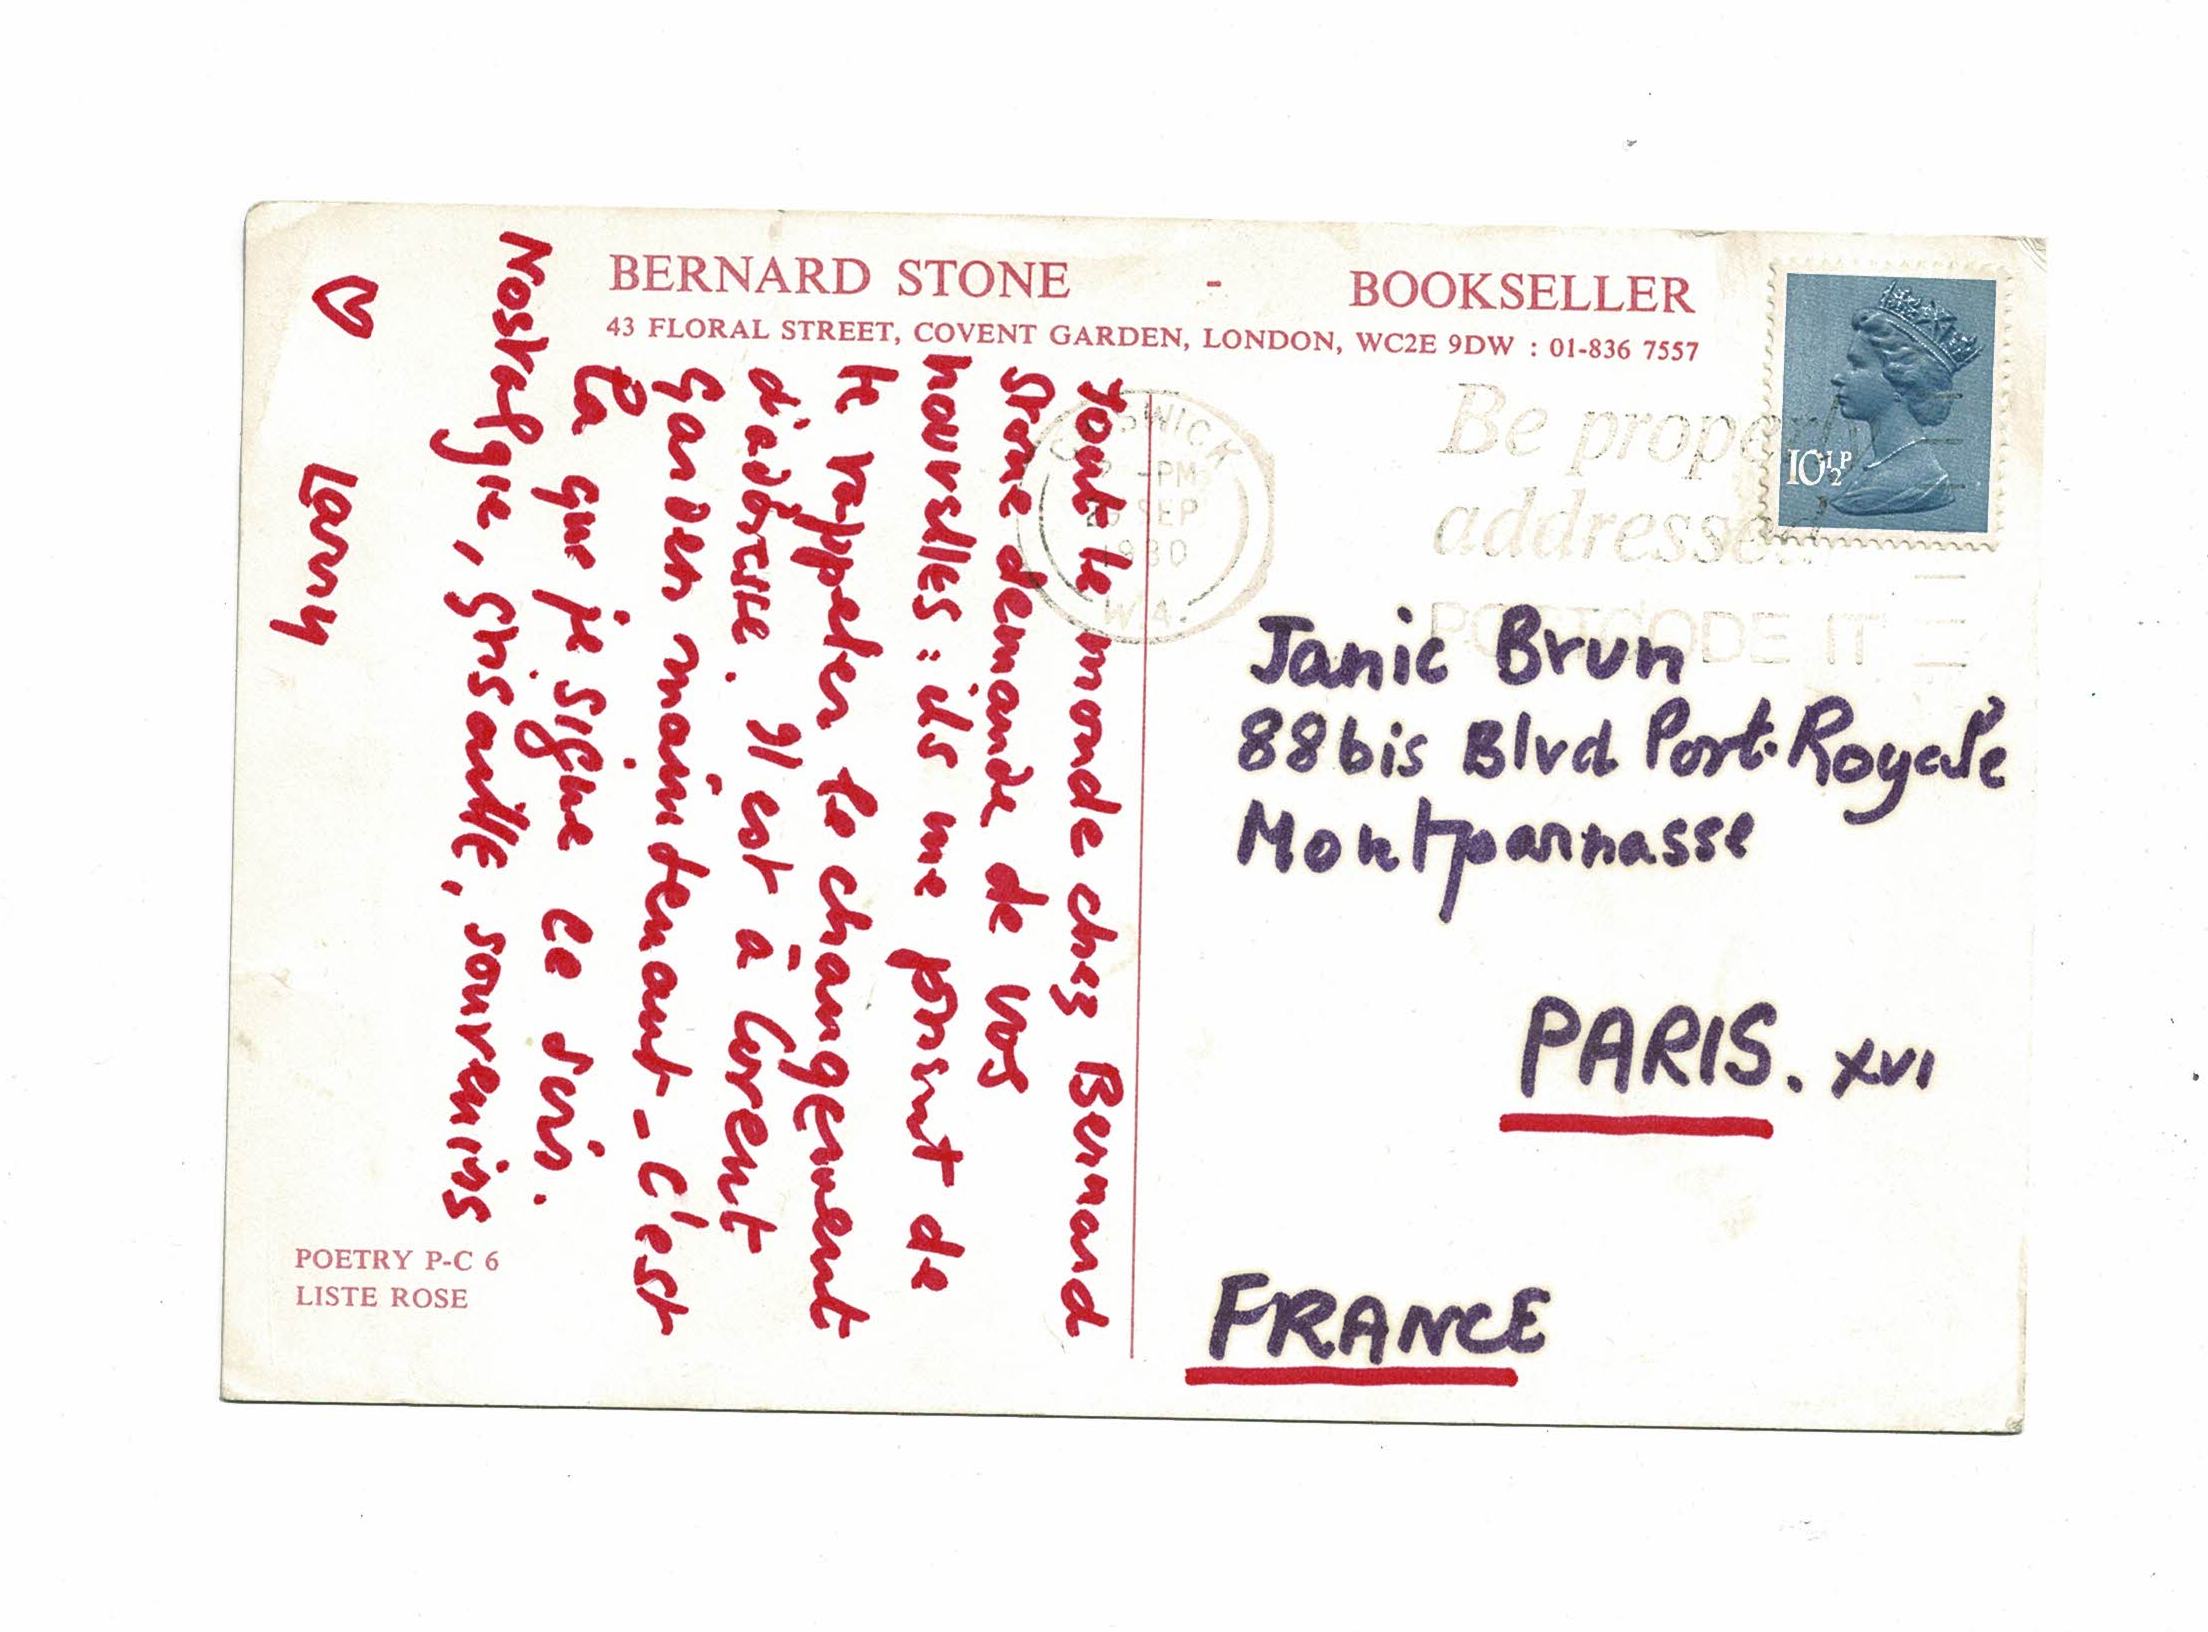 BERNARD STONE - BOOKSELLER
43 FLORAL STREET, COVENT GARDEN, LONDON, WC2E 9DW : 01-836 7557
Tout le monde chez Bernard
Stone demande de vos
nouvelles : ils me prient de
te rappeler le changement
d'addresse. Il est à Covent
Garden maintenant - C'est
là que je signe ce soir.
Nostalgie, grisaille, souvenirs
♡ Larry
POETRY P-C 6
LISTE ROSE
10½P
Be properly
addressed
POSTCODE IT
CHISWICK
-PM
SEP
1980
W.4.
Janic Brun
88bis Blvd Port-Royale
Montparnasse
PARIS. XVI
FRANCE